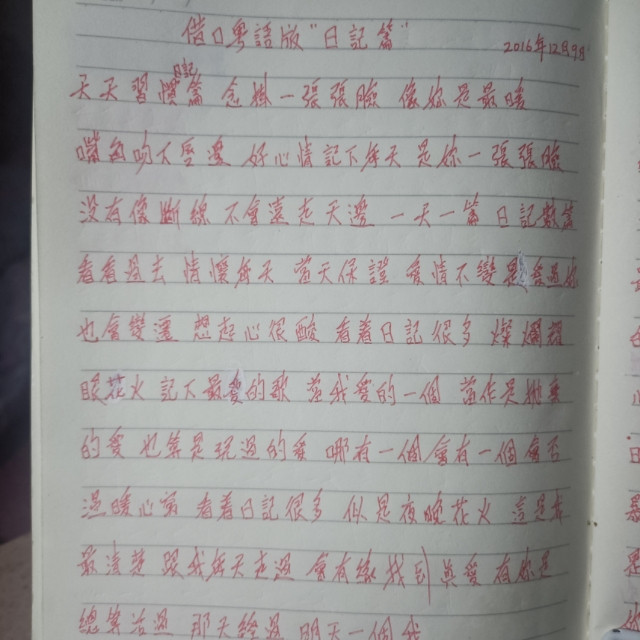 借口粵語版"日記篇"
2016年12月9日
天天習慣記篇 念掛一張張臉 像你是最暖
嘴角吻不變還 好心情記下每天 是你一張張臉
沒有像斷線 不會遠走天邊 一天一篇 日記數篇
看看過去 情懷每天 當天保證 愛情不變 會
也會變遷 想起心很酸 看着日記很多 燦爛
眼花火 記下最愛的歌 當我愛的一個 當作是
的愛 也算是玩過的愛 哪有一個 會有一個 會否
溫暖心窩 看着日記很多 似是夜晚花火 這是
最清楚 跟我每天走過 會有緣找到真愛 有你是
總算活過 那天經過 明天一個我